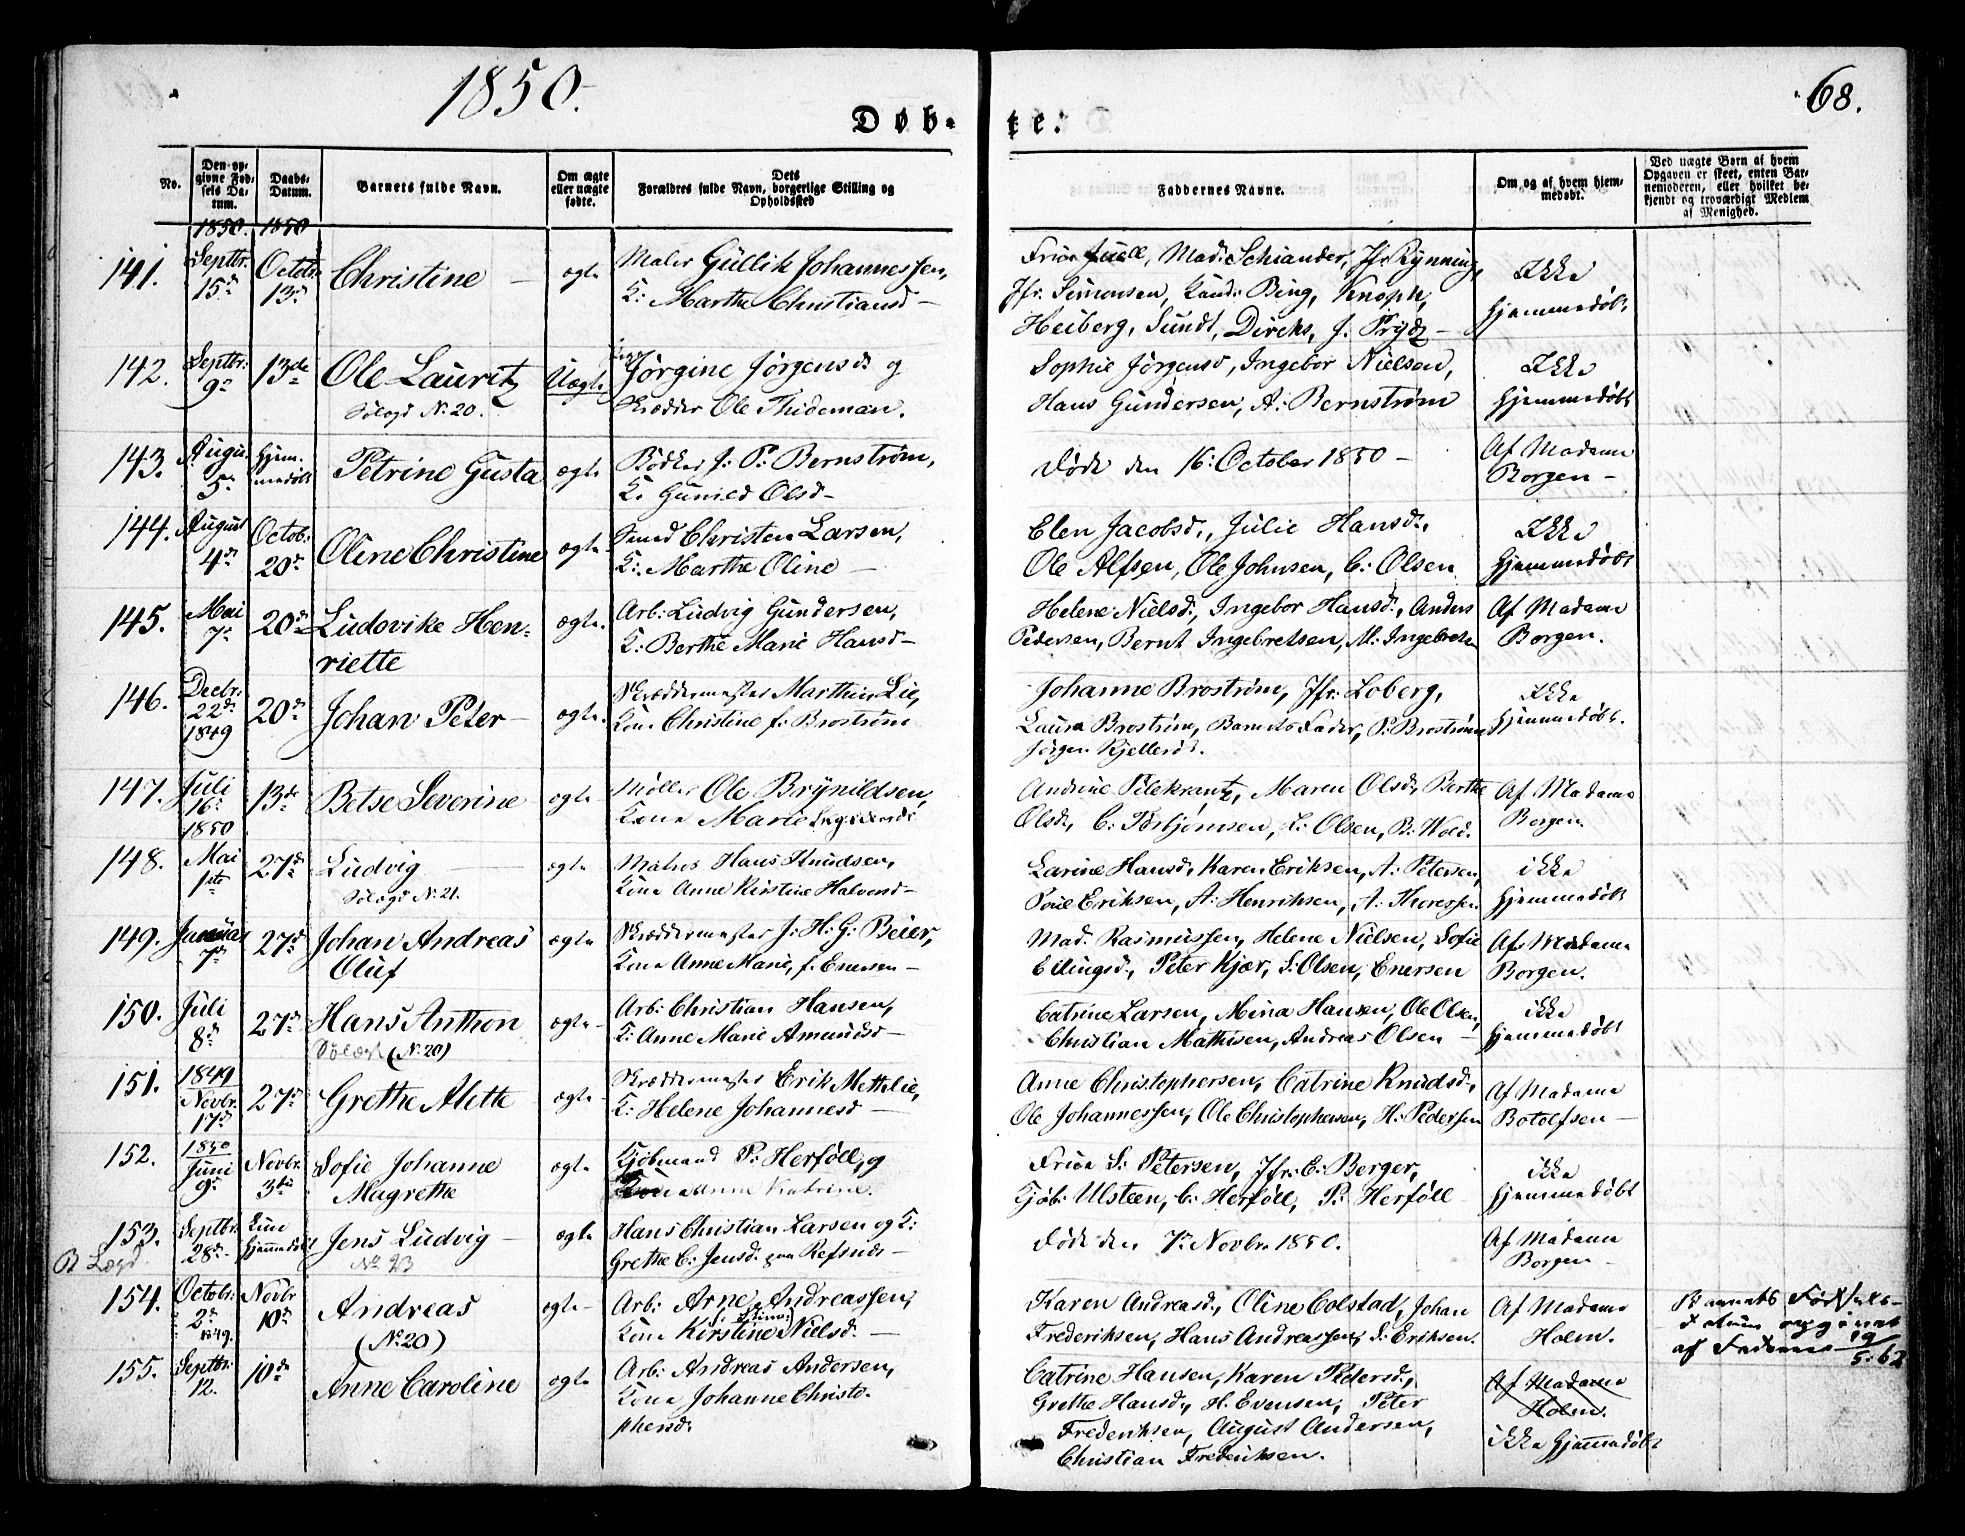 1850.
68.
Døb- te:
No.
Den op-
givne Fød-
sels Da-
tum.
Daabs-
Datum.
Barnets fulde Navn.
Om ægte
eller uægte
fødte.
Dets
Forældres fulde Navn, borgerlige Stilling og
Opholdssted
Faddernes Navne.
Om og af hvem hjem-
medøbt.
Ved uægte Børn af hvem
Opgaven er skeet, enten Bar-
nemoderen, eller hvilket be-
kjendt og troværdigt Medlem
af Menighed.
1850. 1850
141. Septbr. 15de Octobr. 13de Christine ægte
Maler Gullik Johannessen,
K: Marthe Christiansd
Frue Juell, Mad: Schiander, Jfr Rynning,
Jfr. Simonsen, Kand: Bing, Knoph,
Heiberg, Sundt, Dircks, J. Prydz
Ikke
hjemmedøbt
142. Septbr. 9de 13de Ole Lauritz Uægte
Sølogd No 20.
Jørgine Jørgensd: og
Skrædder Ole Thideman.
Sophie Jørgensd, Ingebor Nielsen,
Hans Gundersen, A: Bernstrøm
Ikke
hjemmedøbt
143. Augu. 5te Hjem-
medøbt Petrine Gusta ægte
Bødker J: P: Bernstrøm,
K. Gunild Olsd
Døde den 16: October 1850
Af Madame
Borgen
144. August 4de Octob: 20de Oline Christine ægte
Smed Christen Larsen,
K: Marthe Oline
Elen Jacobsd., Julie Hansd.,
Ole Alfsen, Ole Johnsen, C: Olsen
Ikke
hjemmedøbt
145. Mai 7de 20de Ludovike Hen-
riette ægte.
Arb: Ludvig Gundersen,
K: Berthe Marie Hansd
Helene Nielsd., Ingebor Hansd., Anders
Pedersen, Bernt Ingebretsen, M: Ingebretsen
Af Madame
Borgen.
146. Decbr. 22de 1849 20de Johan Peter ægte.
Skræddermester Marthin Lie,
Kone Christine f: Brostrøm
Johanne Brostrøm, Jfr: Loberg,
Laura Brostrøm, Barnets Fader, P: Brostrøm
Jørgen Kjellerød.
Ikke
hjemmedøbt.
147. Juli 16de 1850 13de Betse Severine ægte
Møller Ole Brynildsen,
Kone Marie
Andrine Pelekrantz, Maren Olsd, Berthe
Olsd, C: Torbjørnsen, L: Olsen, B: Wold.
Af Madame
Borgen.
148. Mai 1ste 27de Ludvig ægte
Sølogd No 21.
Matros Hans Knudsen,
Kone Anne Kirstine Halvorsd
Larine Hansd, Karen Eriksen, A: Petersen,
Poul Eriksen, A: Henriksen, A: Thoressen
ikke
hjemmedøbt
149. Januar 7de 27de Johan Andreas
Oluf ægte
Skræddermester J: H: G: Beier,
Kone Anne Marie, f. Enersen
Mad. Rasmussen, Helene Nielsen, Sofie
Ellingsd., Peter Kjær, S: Olsen, Enersen
Af Madame
Borgen.
150. Juli 8de 27de Hans Anthon ægte
Sølogd (No 20)
Arb: Christian Hansen,
K: Anne Marie Amundsd
Catrine Larsen, Mina Hansen, Ole Olsen,
Christian Mathisen, Andreas Olsen
ikke
hjemmedøbt
151. 1849 Novbr. 17de 27de Grethe Alette ægte
Skræddermester Erik Mettelie,
K: Helene Johannesd
Anne Christophersen, Catrine Knudsd.,
Ole Johannessen, Ole Christophersen, H: Pedersen
Af Madame
Botolfsen
152. 1850 Juni 9de Novbr. 3die Sofie Johanne
Magrethe ægte
Kjøbmand P: Herføll, og
Kone Anne Katrine.
Frue S: Petersen, Jfr: E: Berger,
Kjøb: Ulsteen, C: Herføll, P: Herføll
ikke
hjemmedøbt
153. Septbr. 28de Kun
hjemmedøbt Jens Ludvig ægte
No 23
Hans Christian Larsen og K:
Grethe C: Jensd. paa Refsnæs
Døde den 7de Novbr. 1850.
Af Madame
Borgen
154. Octobr: 2de 1849. Novbr 10de Andreas ægte
(No 20)
Arb: Arne Andreassen,
Kone Kirstine Nielsd.
Karen Andreasd., Oline Colstad, Johan
Frederiksen, Hans Andreassen, S: Eriksen.
Af Madame
Holm.
Barnets Fødsels-
datum opgivet
af Faderen 19/5.62
155. Septbr: 12. 10de Anne Caroline ægte
Arb: Andreas Andersen,
Kone Johanne Christo-
phersd.
Catrine Hansen, Karen Pedersd.,
Grethe Hansd., H. Evensen, Peter
Frederiksen, August Andersen,
Christian Frederiksen.
Af Madame
Holm.
ikke hjemmedøbt